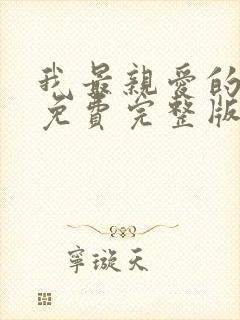 我最親愛的
免費完整版
寧璇天